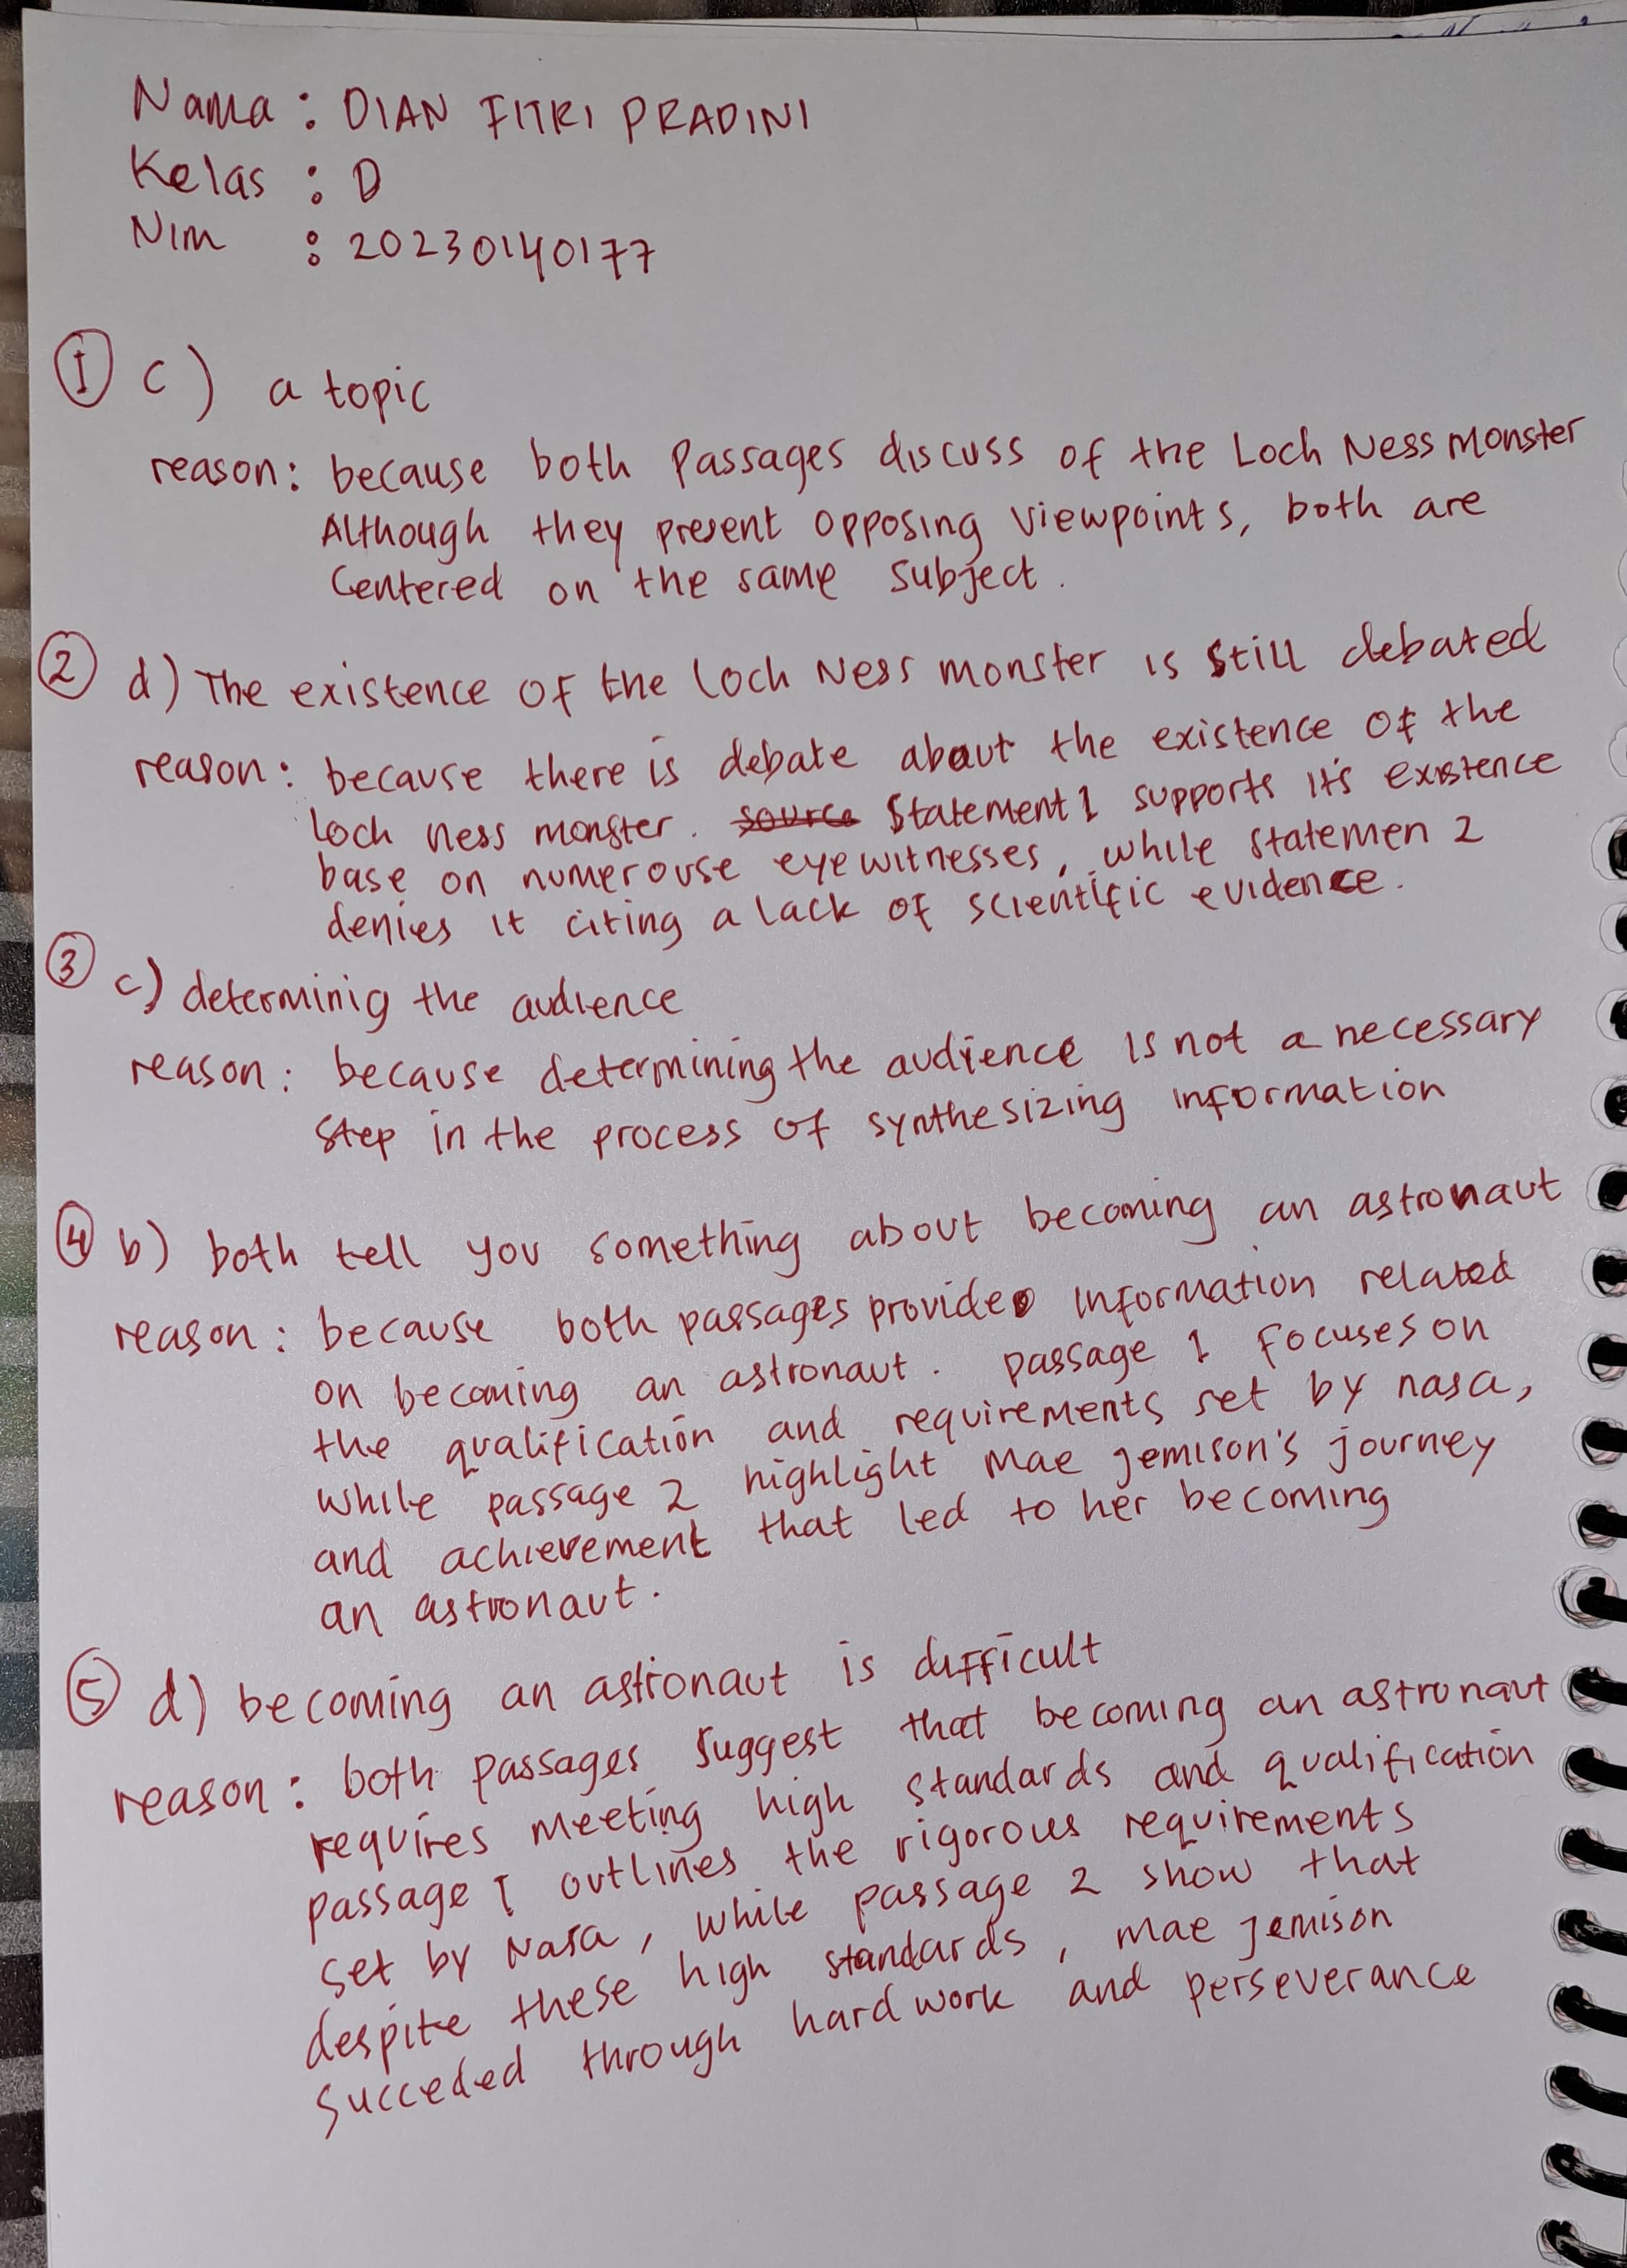 Nama : DIAN FITRI PRADINI
Kelas : D
Nim : 20230140177
① c) a topic
reason: because both Passages discuss of the Loch Ness Monster
Although they present opposing viewpoints, both are
Centered on the same subject.
② d) The existence of the Loch Ness monster is still debated
reason: because there is debate about the existence of the
Loch Ness monster. source Statement 1 supports it's existence
base on numerouse eyewitnesses, while statemen 2
denies it citing a lack of scientific evidence.
③ c) determinig the audience
reason: because determining the audience is not a necessary
step in the process of synthesizing information
④ b) both tell you something about becoming an astronaut
reason: because both passages provide information related
on becoming an astronaut. passage 1 focuses on
the qualification and requirements set by nasa,
while passage 2 highlight Mae jemison's journey
and achievement that led to her becoming
an astronaut.
⑤ d) becoming an astronaut is difficult
reason: both passages suggest that becoming an astronaut
requires meeting high standards and qualification
passage I outlines the rigorous requirements
set by Nasa, while passage 2 show that
despite these high standards, mae jemison
succeded through hard work and perseverance